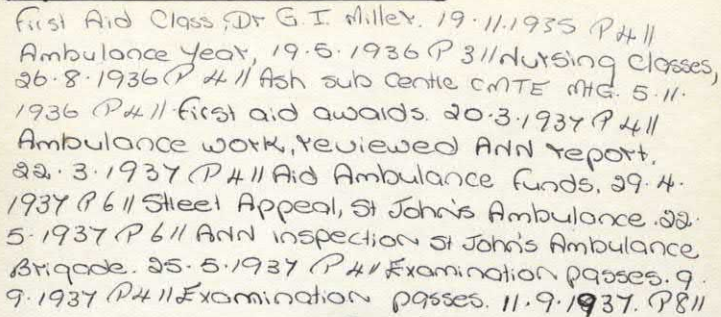 First Aid Class, Dr G.I. Miller. 19.11.1935 P4//
Ambulance Year, 19.5.1936 P3//Nursing Classes,
26.8.1936 P 4// Ash sub Centre CMTE MTG. 5.11.
1936 P4// First aid awards. 20.3.1937 P4//
Ambulance work, reviewed ANN report.
22.3.1937 P4// Aid Ambulance funds. 29.4.
1937 P6// Street Appeal, St John's Ambulance. 22.
5.1937 P6// ANN inspection St John's Ambulance
Brigade. 25.5.1937 P4// Examination passes. 9.
9.1937 P4// Examination passes. 11.9.1937. P8//